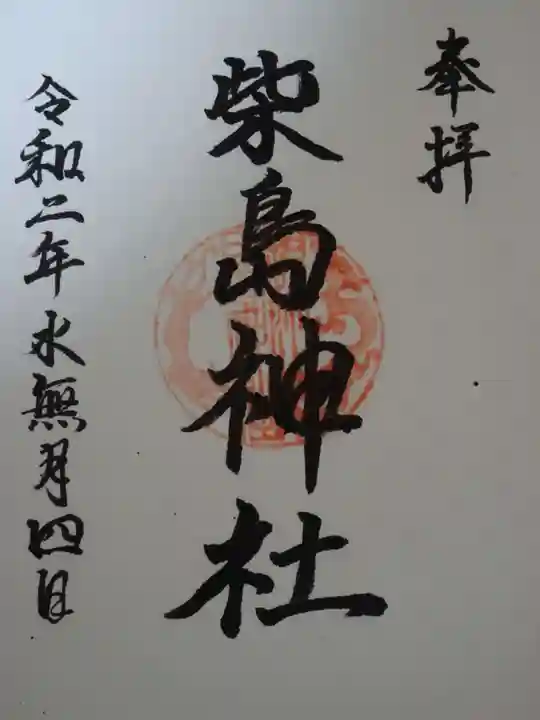 奉拝
柴島神社
令和二年水無月四日